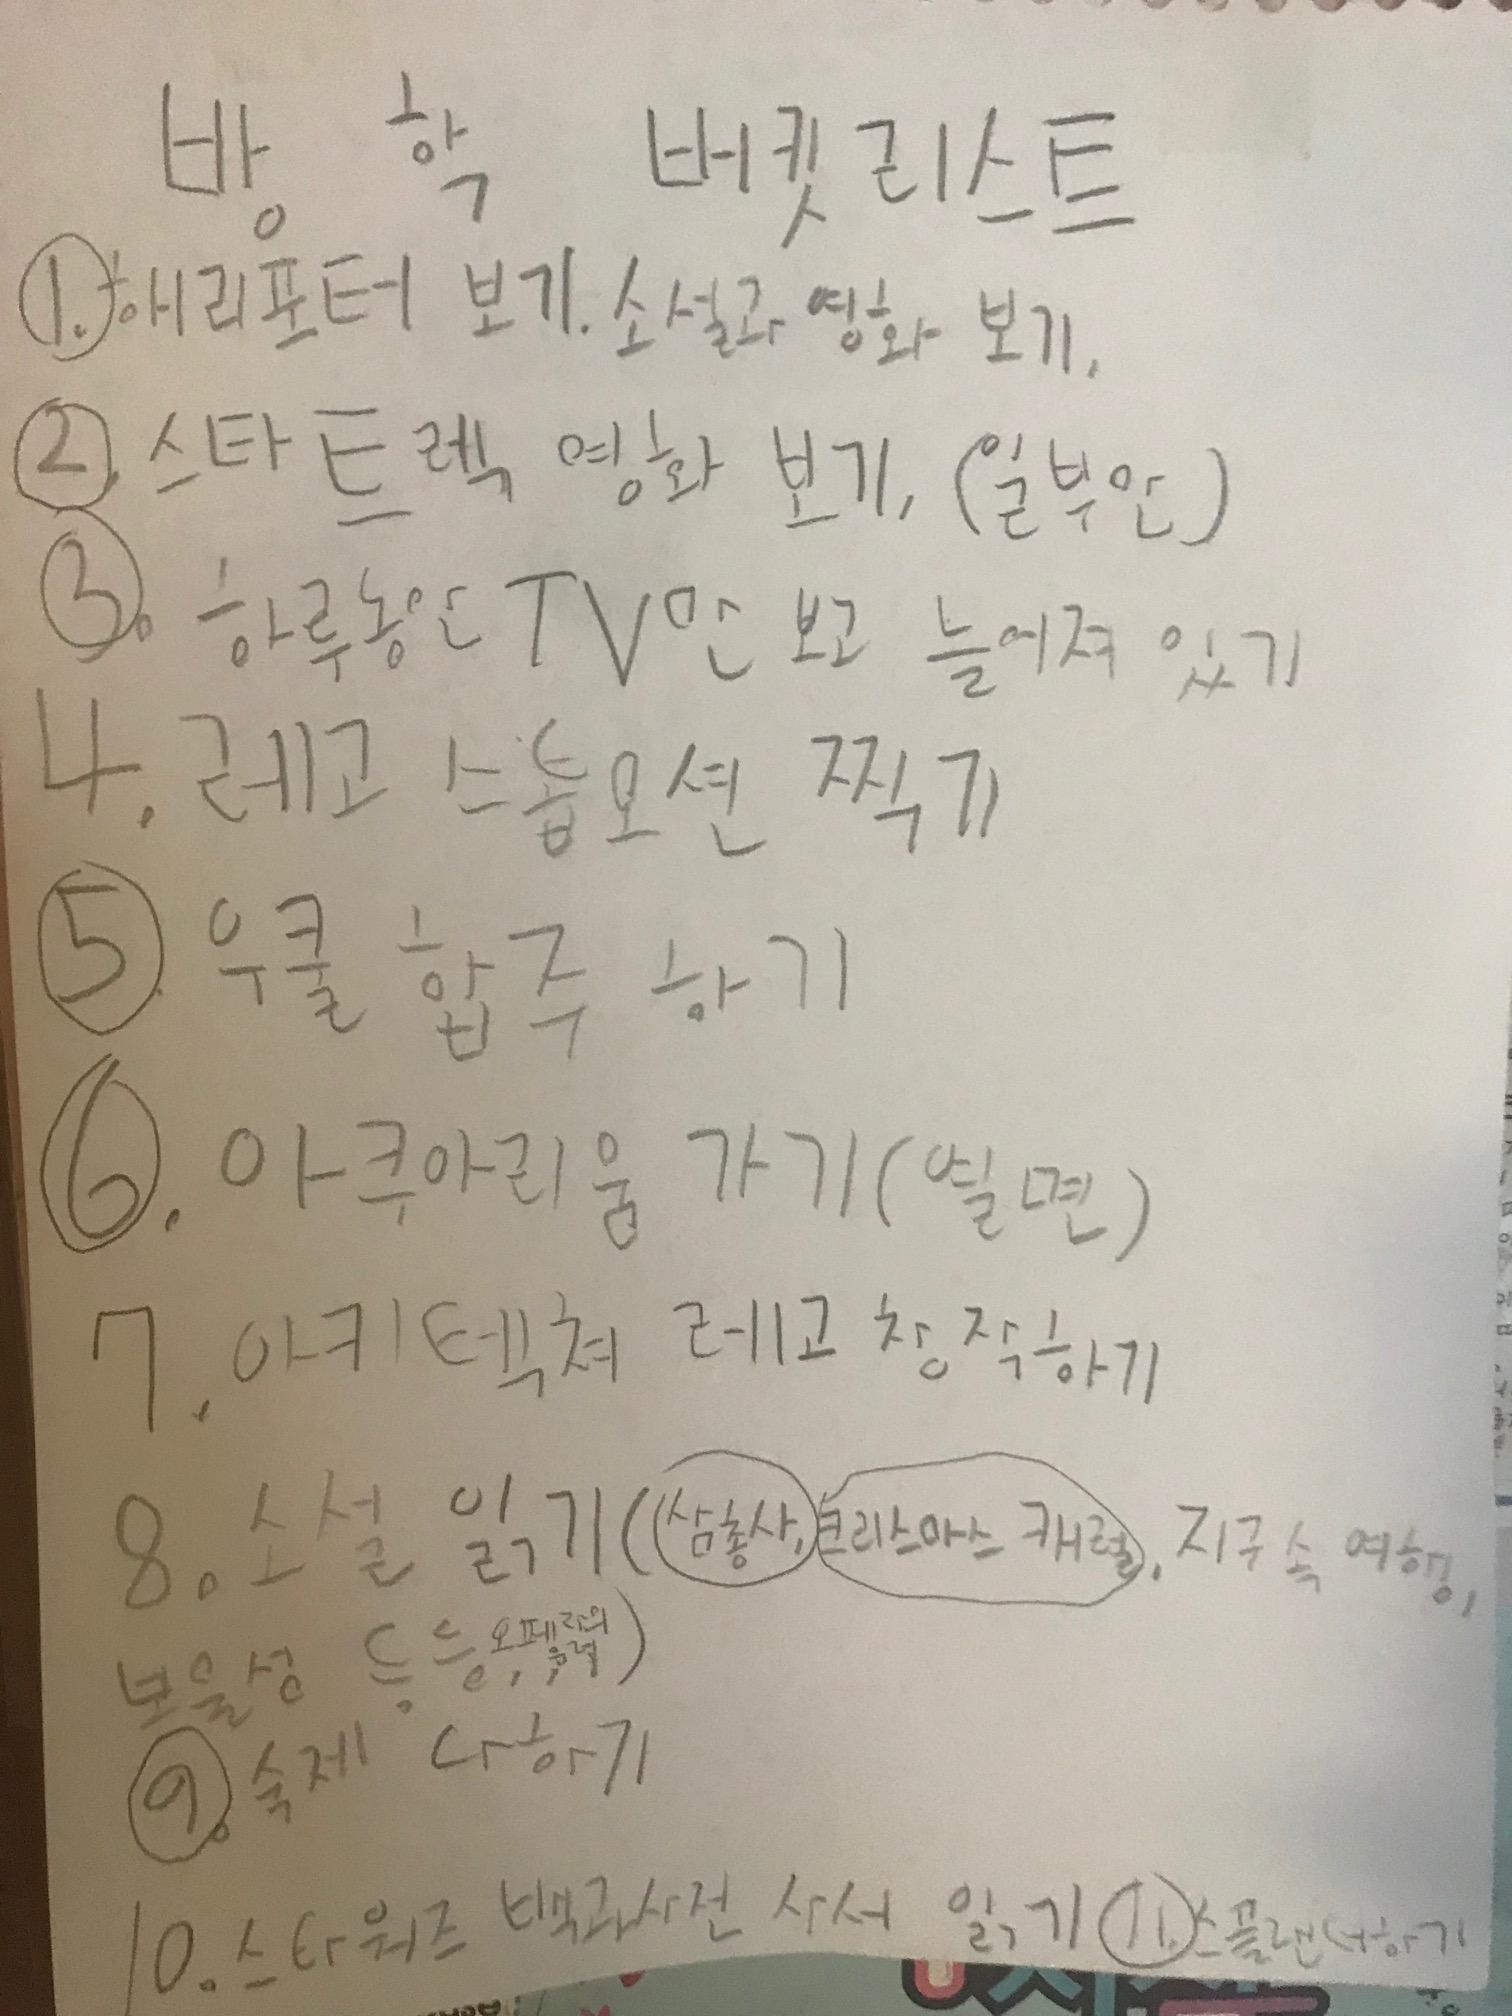 방학 버킷리스트
1. 해리포터 보기. 소설과 영화 보기.
2. 스타트렉 영화 보기, (일부만)
3. 하루동안 TV만 보고 늘어져 있기
4. 레고 스톱모션 찍기
5. 우쿨 합주 하기
6. 아쿠아리움 가기(열면)
7. 아키텍쳐 레고 창작하기
8. 소설 읽기(삼총사, 크리스마스 캐럴, 지구 속 여행,
보물섬 등등, 오페라의 유령)
9. 숙제 다하기
10. 스타워즈 백과사전 사서 읽기 11. 스플랜더하기